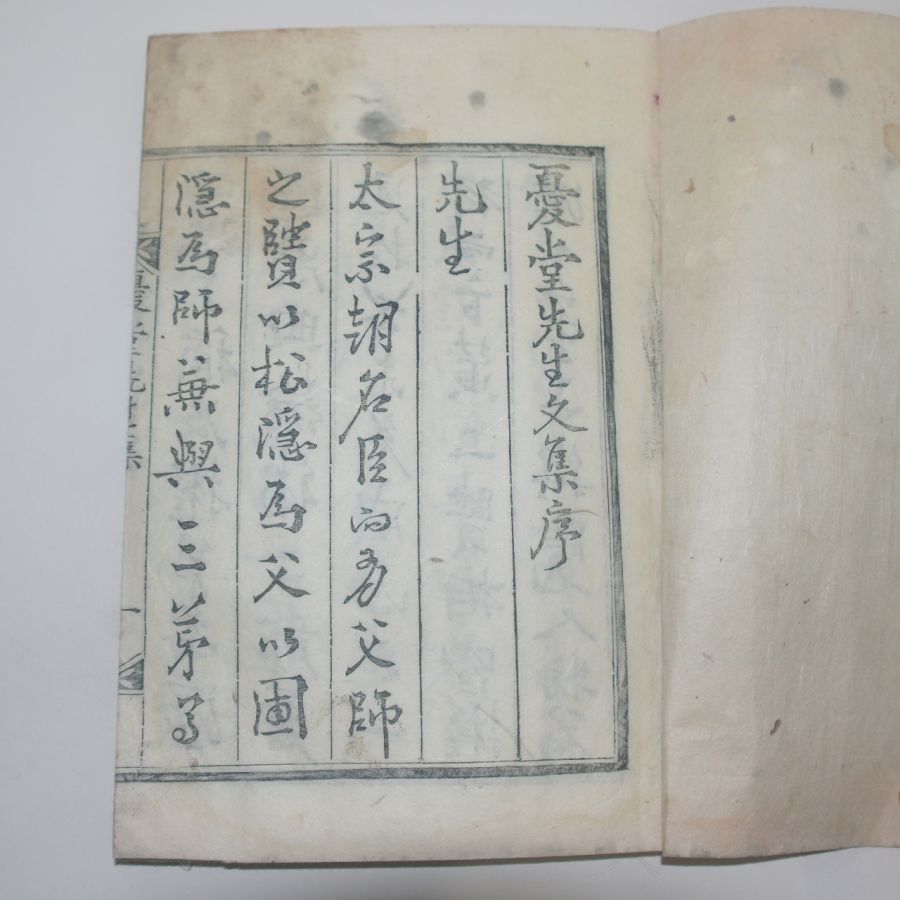 憂堂先生文集序
先生
太宗朝名臣而有父師
之賢以松隱為父以圃
隱為師兼與三弟
憂堂先生集
一